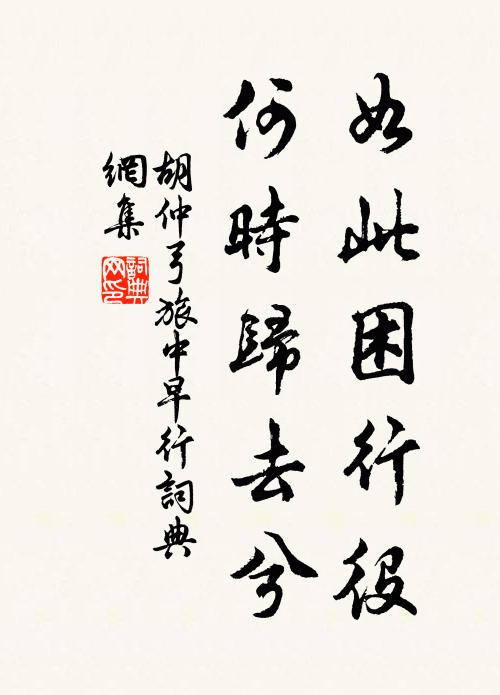 如此困行役
何時歸去兮
胡仲弓旅中早行詞典
網集
詞典
网印